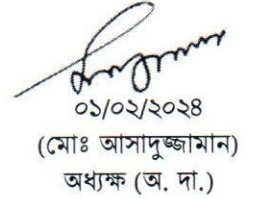 ০১/০২/২০২৪
(মোঃ আসাদুজ্জামান)
অধ্যক্ষ (অ. দা.)